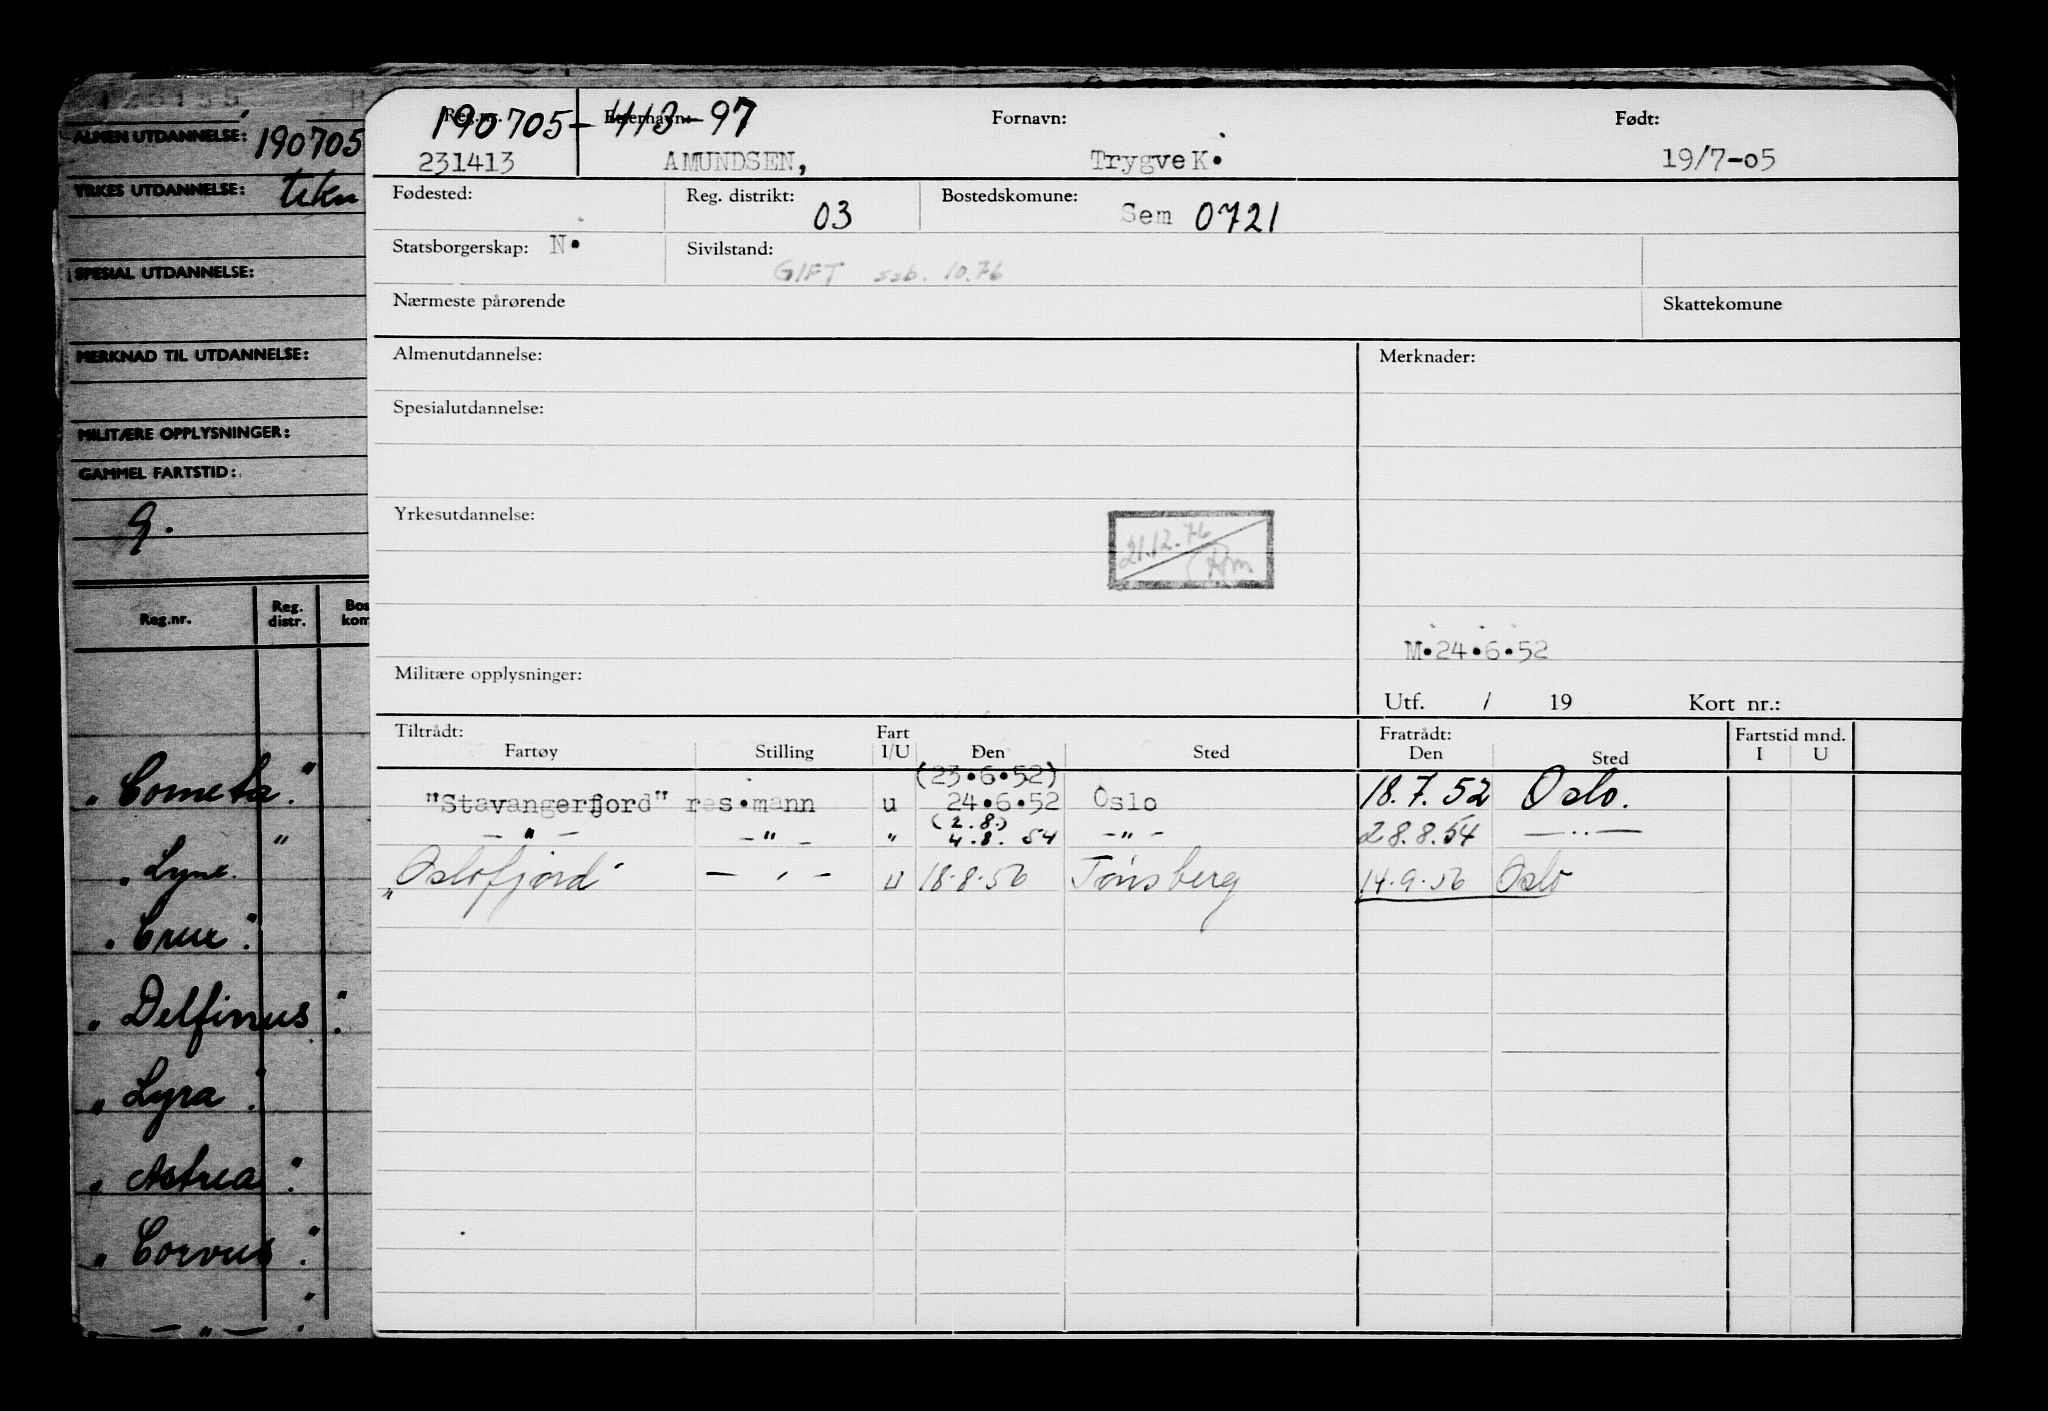 ALMEN UTDANNELSE: 190705
YRKES UTDANNELSE: tekn
SPESIAL UTDANNELSE:
MERKNAD TIL UTDANNELSE:
MILITÆRE OPPLYSNINGER:
GAMMEL FARTSTID:
g.
Reg.nr. Reg. distr. Bos kom
"Cometa"
"
"Lynx"
"Crux"
"Delfinus"
"Lyra"
"Astrea"
"Corvus"
— " —
Reg.nr. 190705 - 413-97 Etternavn: Fornavn: Født:
231413 AMUNDSEN, Trygve K. 19/7-05
Fødested: Reg. distrikt: 03 Bostedskomune: Sem 0721
Statsborgerskap: N. Sivilstand: GIFT ssb. 10.76
Nærmeste pårørende Skattekomune
Almenutdannelse: Merknader:
Spesialutdannelse:
Yrkesutdannelse: 21.12.76
M.24.6.52
Militære opplysninger: Utf. / 19 Kort nr.:
Tiltrådt: Fart Fratrådt: Fartstid mnd.
Fartøy Stilling I/U Den Sted Den Sted I U
(23.6.52)
"Stavangerfjord" res.mann u 24.6.52 Oslo 18.7.52 Oslo.
(2.8.)
— " — — " — " 4.8. 54 — " — 28.8.54 — " —
"Oslofjord" — " — u 18.8.56 Tønsberg 14.9.56 Oslo